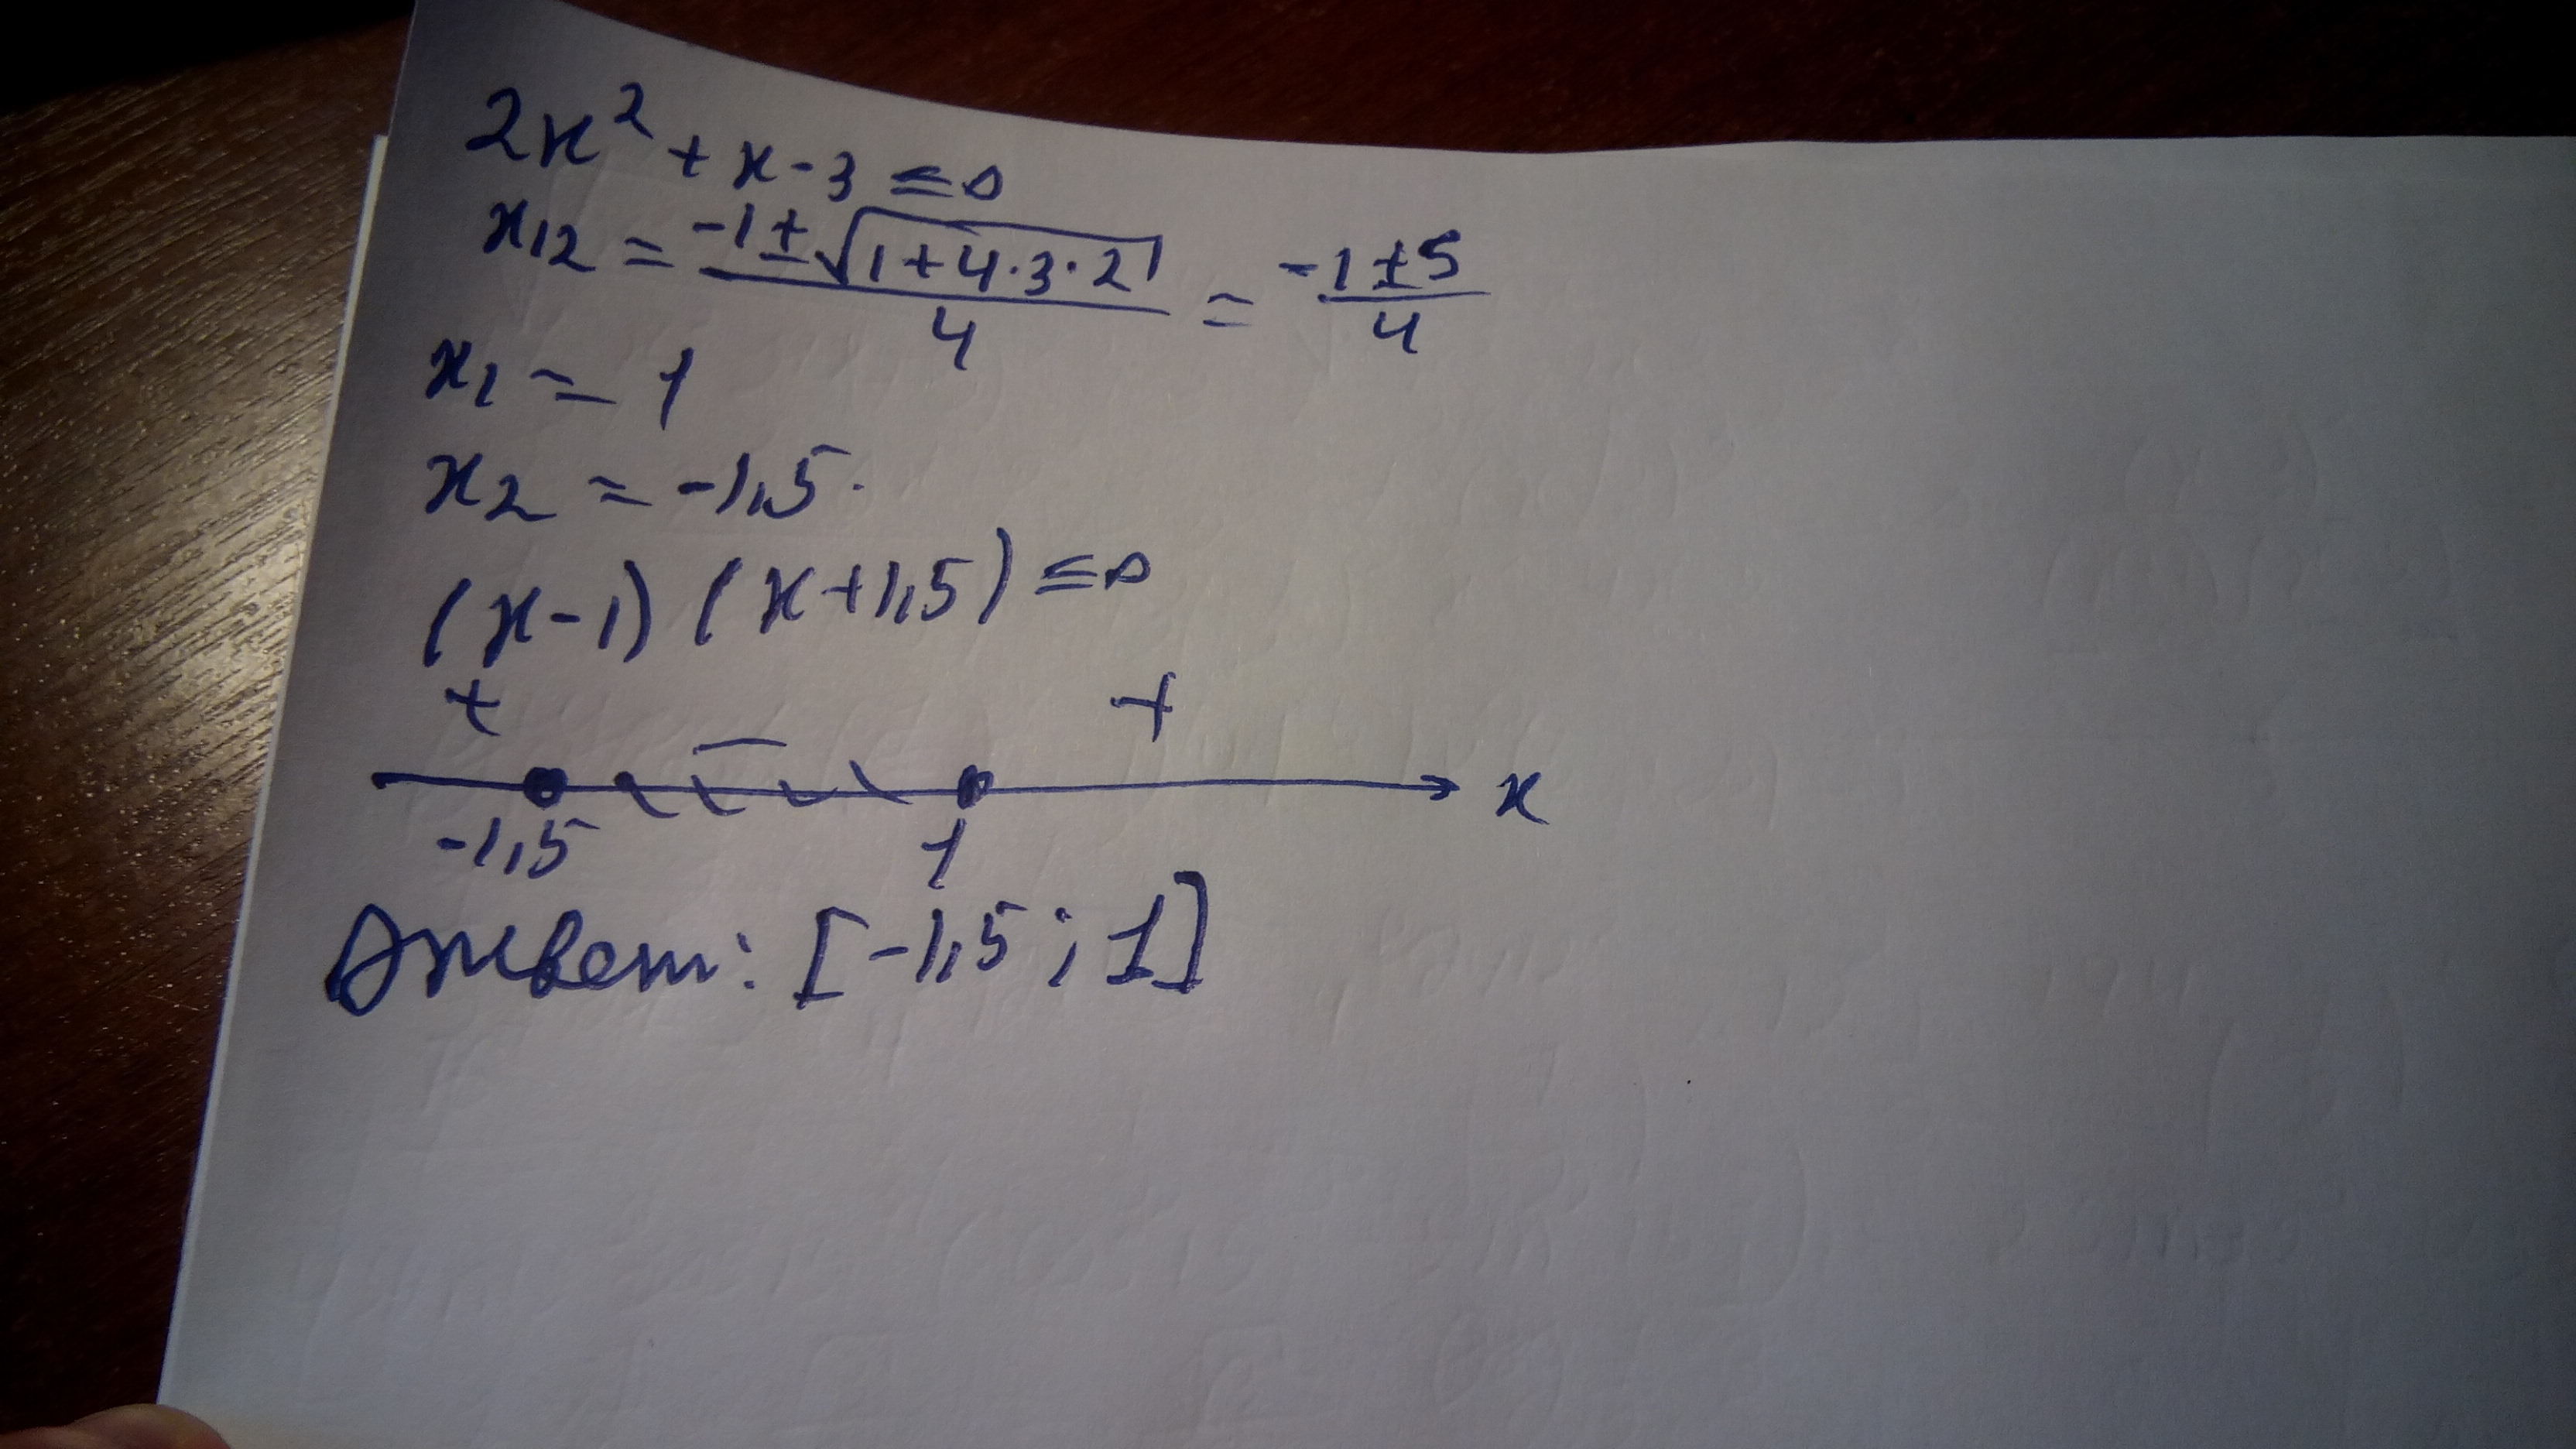 2x² + x - 3 ≤ 0
x₁₂ = (-1 ± √(1+4·3·2))/4 = (-1 ± 5)/4
x₁ = 1
x₂ = -1,5.
(x-1) (x+1,5) ≤ 0
+ − +
-1,5 1 x
Ответ: [-1,5 ; 1]